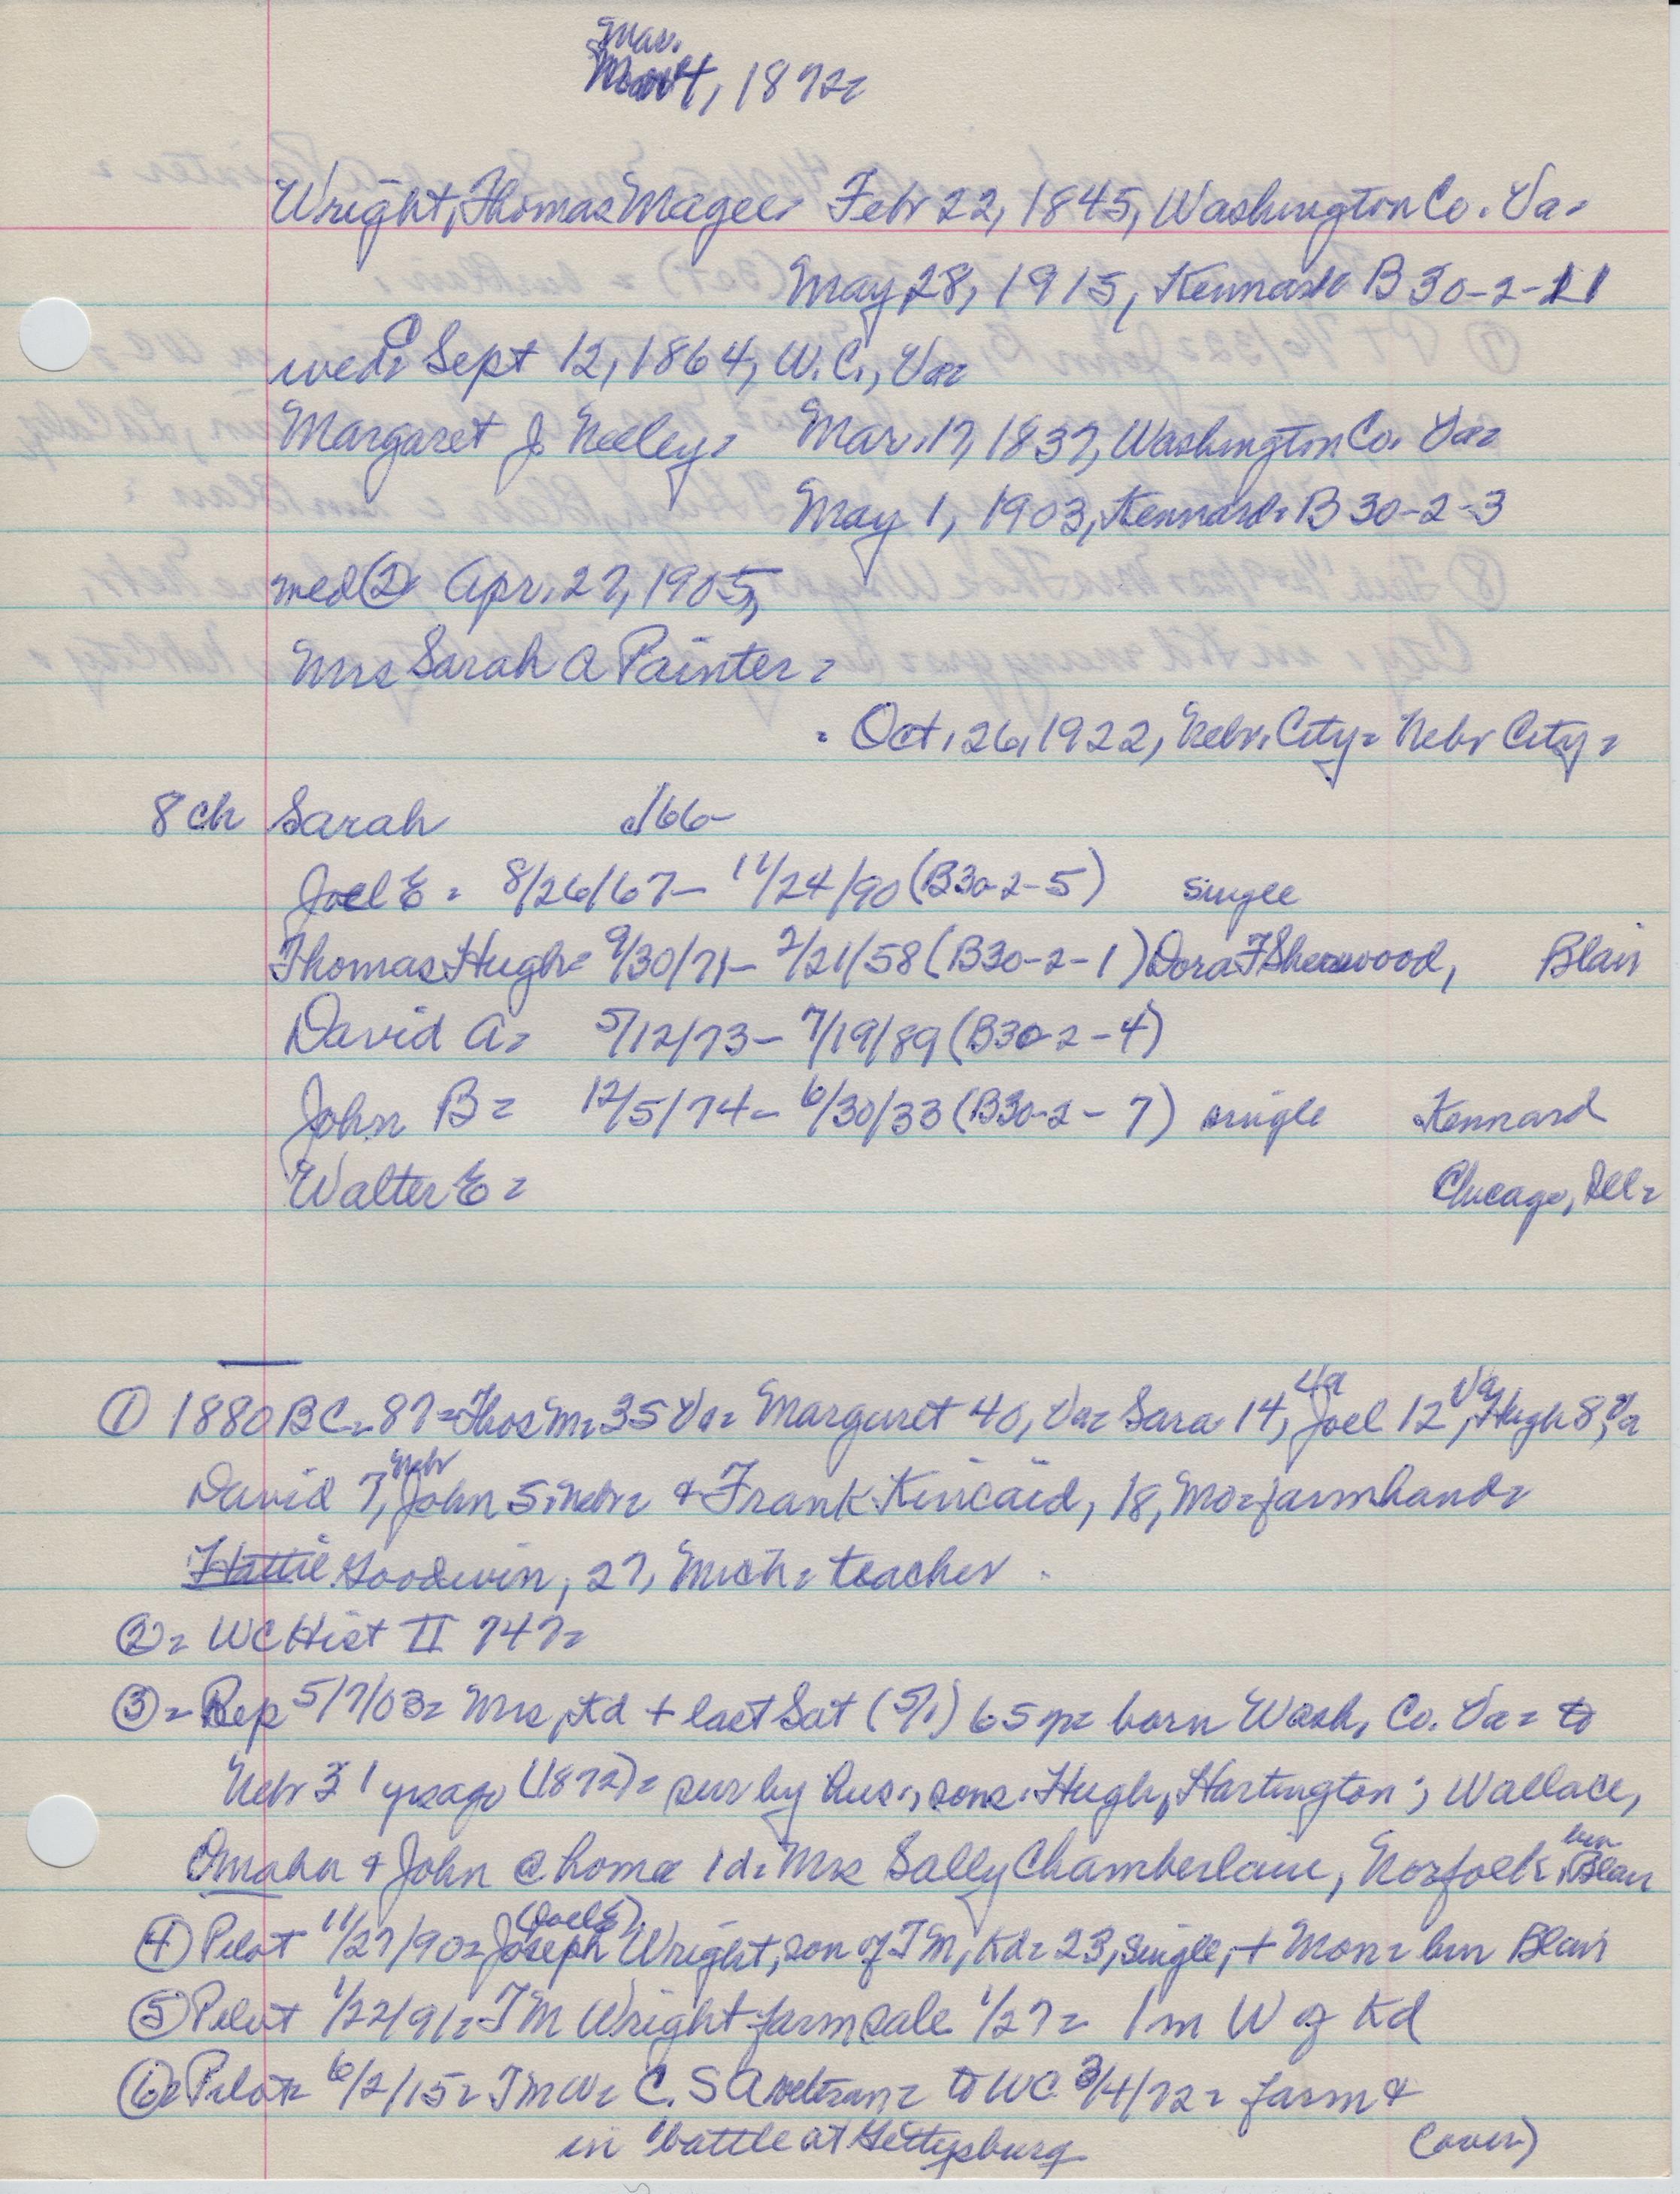 Mar.
4, 1872=
Wright, Thomas Magee= Febr 22, 1845, Washington Co. Va=
May 28, 1915, Kennard= B 30-2-11
wed= ① Sept 12, 1864, W.C., Va=
Margaret J. Neeley= Mar. 17, 1837, Washington Co. Va=
May 1, 1903, Kennard= B 30-2-3
wed ②= Apr. 27, 1905,
Mrs Sarah A Painter=
= Oct. 26, 1922, Nebr. City= Nebr City=
8 ch Sarah d/66-
Joel E= 8/26/67- 11/24/90 (B30-2-5) single
Thomas Hugh= 9/30/71- 2/21/58 (B30-2-1) Dora F Sherwood, Blair
David A= 5/12/73- 7/19/89 (B30-2-4)
John B= 12/5/74- 6/30/33 (B30-2-7) single Kennard
Walter E= Chicago, Ill=
① 1880 BC= 87= Thos M= 35 Va= Margaret 40, Va= Sara 14, Va Joel 12, Va Hugh 8, Va
David 7, Nebr John 5, Nebr= & Frank Kincaid, 18, Mo= farmhand=
Hattie Goodwin, 27, Mich= teacher.
②= WC Hist II 747=
③= Rep 5/7/03= Mrs, Kd + last Sat (5/1) 65 yr= born Wash. Co. Va= to
Nebr 31 yrs ago (1872)= sur by hus., sons: Hugh, Hartington; Wallace,
Omaha & John @ home 1 d: Mrs Sally Chamberlain, Norfolk= bur Blair
④ Pilot 11/27/90= Joseph (Joel E) Wright, son of TM, Kd= 23, single, + Mon= bur Blair
⑤ Pilot 1/22/91= TM Wright farm sale 1/27= 1 m W of Kd
⑥= Pilot= 6/2/15= TMW= C.S A veteran= to WC 3/4/72= farm &
in battle at Gettysburg (over)